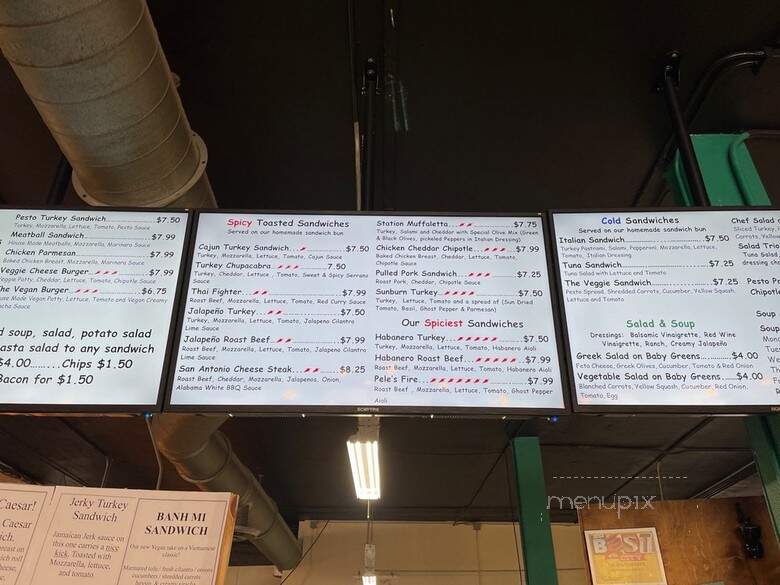 Pesto Turkey Sandwich..............$7.50
Turkey, Mozzarella, Lettuce, Tomato, Pesto Sauce
Meatball Sandwich...................$7.99
House Made Meatballs, Mozzarella, Marinara Sauce
Chicken Parmesan....................$7.99
Baked Chicken Breast, Mozzarella, Marinara Sauce
Veggie Cheese Burger...............$7.99
Veggie Patty, Cheddar, Lettuce, Tomato, Chipotle Sauce
he Vegan Burger.....................$6.75
use Made Vegan Patty, Lettuce, Tomato and Vegan Creamy
cha Sauce
d soup, salad, potato salad
asta salad to any sandwich
$4.00.........Chips $1.50
Bacon for $1.50
Spicy Toasted Sandwiches
Served on our homemade sandwich bun
Cajun Turkey Sandwich..............$7.50
Turkey, Mozzarella, Lettuce, Tomato, Cajun Sauce
Turkey Chupacabra..............7.50
Turkey, Cheddar, Lettuce, Tomato, Sweet & Spicy Serrano
Sauce
Thai Fighter..............$7.99
Roast Beef, Mozzarella, Lettuce, Tomato, Red Curry Sauce
Jalapeño Turkey..............$7.50
Turkey, Mozzarella, Lettuce, Tomato, Jalapeno Cilantro
Lime Sauce
Jalapeño Roast Beef..............$7.99
Roast Beef, Mozzarella, Lettuce, Tomato, Jalapeno Cilantro
Lime Sauce
San Antonio Cheese Steak..............$8.25
Roast Beef, Cheddar, Mozzarella, Jalapenos, Onion,
Alabama White BBQ Sauce
Station Muffaletta..............$7.75
Turkey, Salami and Cheddar with Special Olive Mix (Green
& Black Olives, pickeled Peppers in Italian Dressing)
Chicken Cheddar Chipotle..............$7.99
Baked Chicken Breast, Cheddar, Lettuce, Tomato,
Chipotle Sauce
Pulled Pork Sandwich..............$7.25
Roast Pork, Cheddar, Chipotle Sauce
Sunburn Turkey..............$7.50
Turkey, Lettuce, Tomato and a spread of (Sun Dried
Tomato, Basil, Ghost Pepper & Parmesan)
Our Spiciest Sandwiches
Habanero Turkey..............$7.50
Turkey, Mozzarella, Lettuce, Tomato, Habanero Aioli
Habanero Roast Beef..............$7.99
Roast Beef, Mozzarella, Lettuce, Tomato, Habanero Aioli
Pele's Fire..............$7.99
Roast Beef, Mozzarella, Lettuce, Tomato, Ghost Pepper
Aioli
SCEPTRE
Cold Sandwiches
Served on our homemade sandwich bun
Italian Sandwich..............$7.50
Turkey Pastrami, Salami, Pepperoni, Mozzarella, Lettuce,
Tomato, Italian Dressing
Tuna Sandwich..............$7.25
Tuna Salad with Lettuce and Tomato
The Veggie Sandwich..............$7.25
Pesto Spread, Shredded Carrots, Cucumber, Yellow Squash,
Lettuce and Tomato
Salad & Soup
Dressings: Balsamic Vinaigrette, Red Wine
Vinaigrette, Ranch, Creamy Jalapeño
Greek Salad on Baby Greens..............$4.00
Feta Cheese, Greek Olives, Cucumber, Tomato & Red Onion
Vegetable Salad on Baby Greens.....$4.00
Blanched Carrots, Yellow Squash, Cucumber, Red Onion,
Tomato, Egg
Chef Salad
Sliced Turkey,
Carrots, Yellow
Salad Trio
Tuna Salad,
dressing
Pesto
Chipotl
Soup
Soup
Mon
Tues
We
Th
menupix
Caesar!
Caesar
ich.
Jerky Turkey
Sandwich
Jamaican Jerk sauce on
this one carries a nice
kick. Toasted with
Mozzarella, lettuce,
and tomato.
BANH MI
SANDWICH
Our new Vegan take on a Vietnamese
classic!
Marinated tofu / fresh cilantro / onions
cucumbers / shredded carrots
BEST